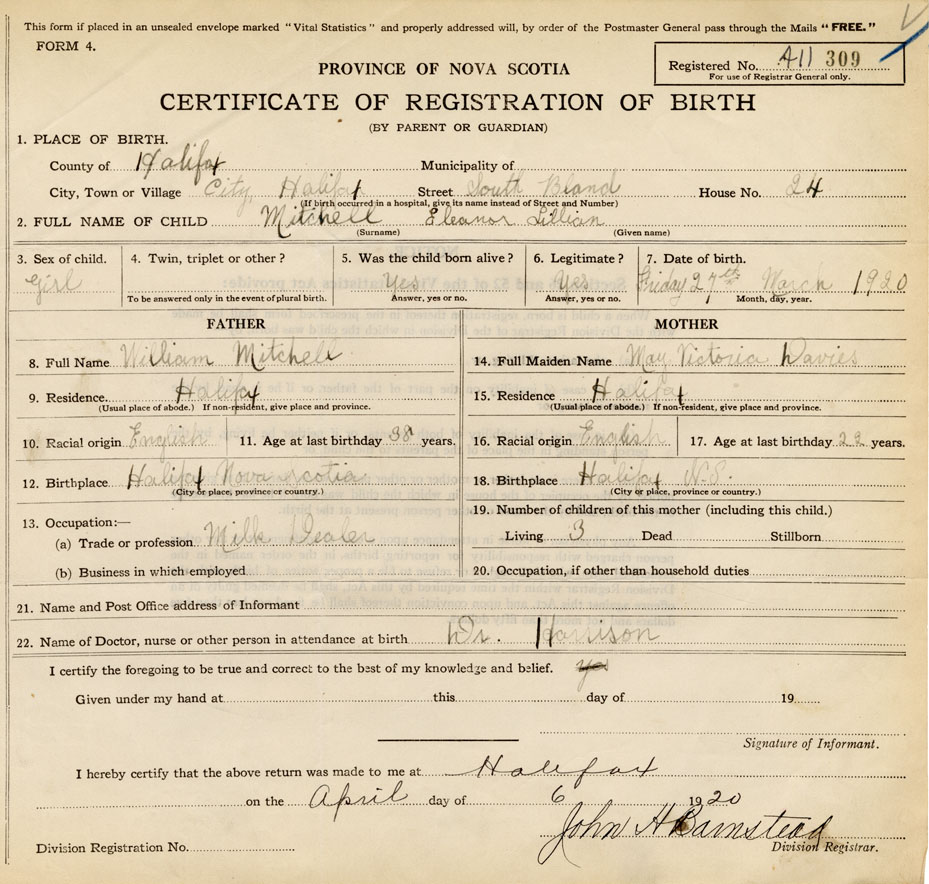 This form if placed in an unsealed envelope marked "Vital Statistics" and properly addressed will, by order of the Postmaster General pass through the Mails "FREE."
FORM 4.
Registered No. A11 309
For use of Registrar General only.
PROVINCE OF NOVA SCOTIA
CERTIFICATE OF REGISTRATION OF BIRTH
(BY PARENT OR GUARDIAN)
1. PLACE OF BIRTH.
County of Halifax Municipality of
City, Town or Village City, Halifax Street South Bland House No. 24
(If birth occurred in a hospital, give its name instead of Street and Number)
2. FULL NAME OF CHILD Mitchell Eleanor Lillian
(Surname) (Given name)
3. Sex of child. 4. Twin, triplet or other? 5. Was the child born alive? 6. Legitimate? 7. Date of birth.
Girl Yes Yes Friday 27th March 1920
To be answered only in the event of plural birth. Answer, yes or no. Answer, yes or no. Month, day, year.
FATHER MOTHER
8. Full Name William Mitchell 14. Full Maiden Name May Victoria Davies
9. Residence. Halifax 15. Residence Halifax
(Usual place of abode.) If non-resident, give place and province. (Usual place of abode.) If non-resident, give place and province.
10. Racial origin English 11. Age at last birthday 38 years. 16. Racial origin English 17. Age at last birthday 22 years.
12. Birthplace Halifax Nova Scotia 18. Birthplace Halifax N.S.
(City or place, province or country.) (City or place, province or country.)
13. Occupation:— 19. Number of children of this mother (including this child.)
(a) Trade or profession Milk Dealer Living 3 Dead Stillborn
(b) Business in which employed 20. Occupation, if other than household duties
21. Name and Post Office address of Informant
22. Name of Doctor, nurse or other person in attendance at birth Dr. Harrison
I certify the foregoing to be true and correct to the best of my knowledge and belief. yes
Given under my hand at this day of 19
Signature of Informant.
I hereby certify that the above return was made to me at Halifax
on the April day of 6 1920
John H Barnstead
Division Registration No. Division Registrar.